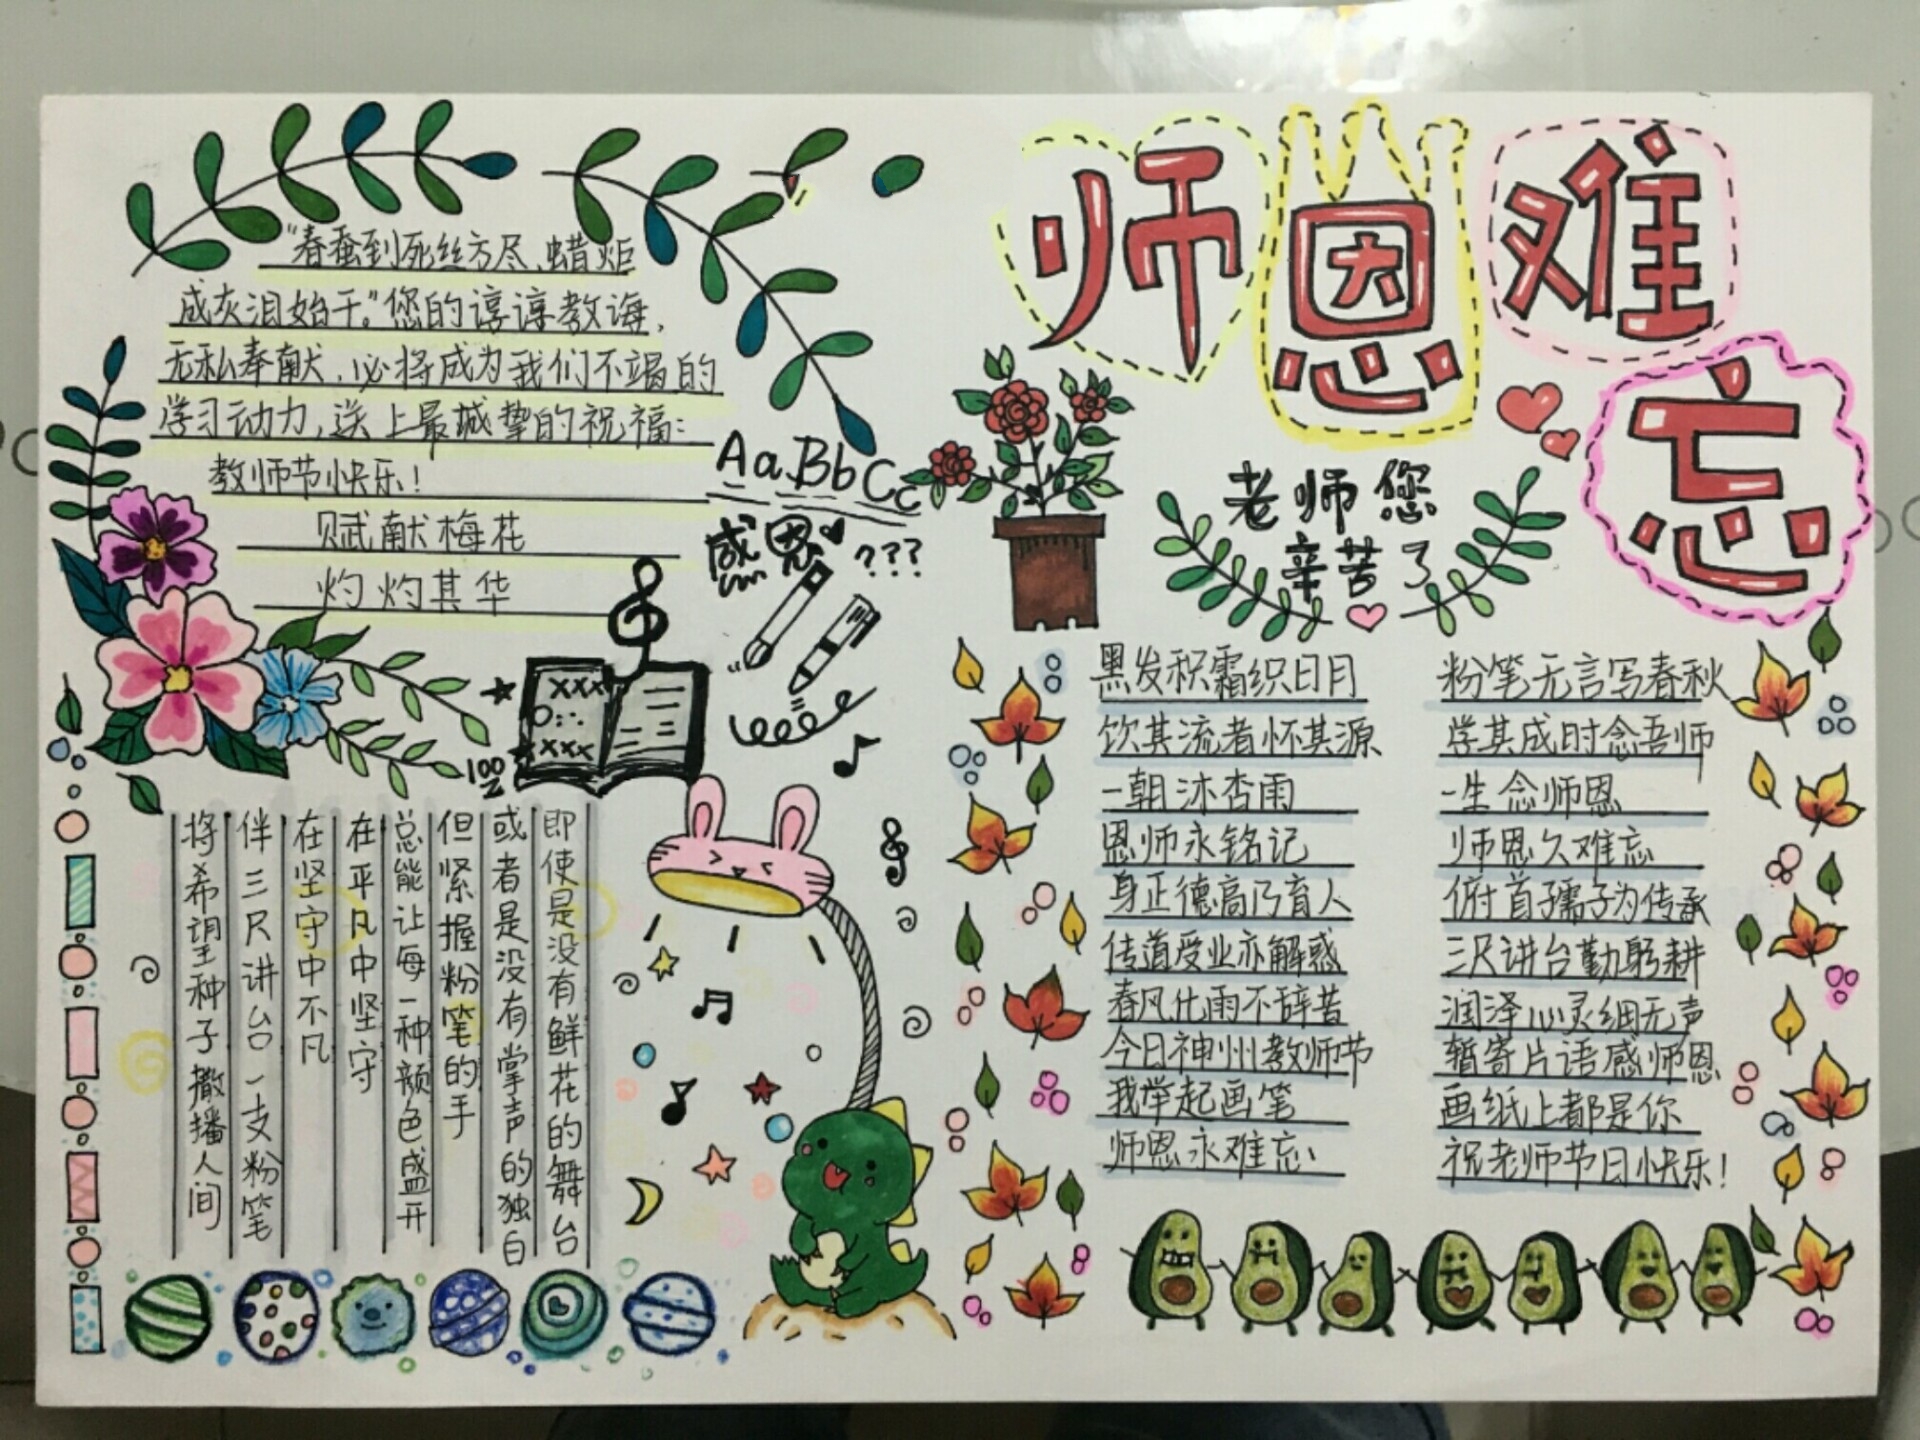 师恩难忘
老师您
辛苦了
"春蚕到死丝方尽,蜡炬
成灰泪始干。"您的谆谆教诲,
无私奉献,必将成为我们不竭的
学习动力,送上最诚挚的祝福:
教师节快乐!
赋献梅花
灼灼其华
AaBbCc
感恩
???
xxx
xxxx
100
即使是没有鲜花的舞台
或者是没有掌声的独白
但紧握粉笔的手
总能让每一种颜色盛开
在平凡中坚守
在坚守中不凡
伴三尺讲台一支粉笔
将希望种子撒播人间
黑发积霜织日月
饮其流者怀其源
一朝沐杏雨
恩师永铭记
身正德高乃育人
传道受业亦解惑
春风化雨不辞苦
今日神州教师节
我举起画笔
师恩永难忘
粉笔无言写春秋
学其成时念吾师
一生念师恩
师恩久难忘
俯首孺子为传承
三尺讲台勤躬耕
润泽心灵细无声
暂寄片语感师恩
画纸上都是你
祝老师节日快乐!